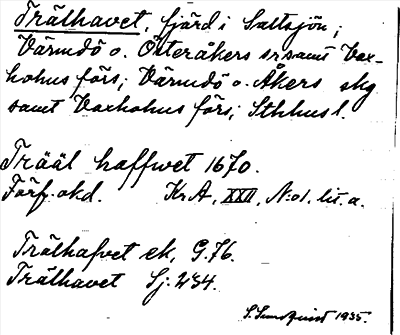 Trälhavet, fjärd i Saltsjön;
Värmdö o. Österåkers srsamt Vax-
holms förs; Värmdö o. Åkers skg
samt Vaxholms förs; Sthlms l.
Trääl haffwet 1670.
Förf. okd. Kr A, XXII, N:o 1. lit. a.
Trälhafvet ek, G. 76.
Trälhavet Sj. 234.
S. Sundquist 1935.